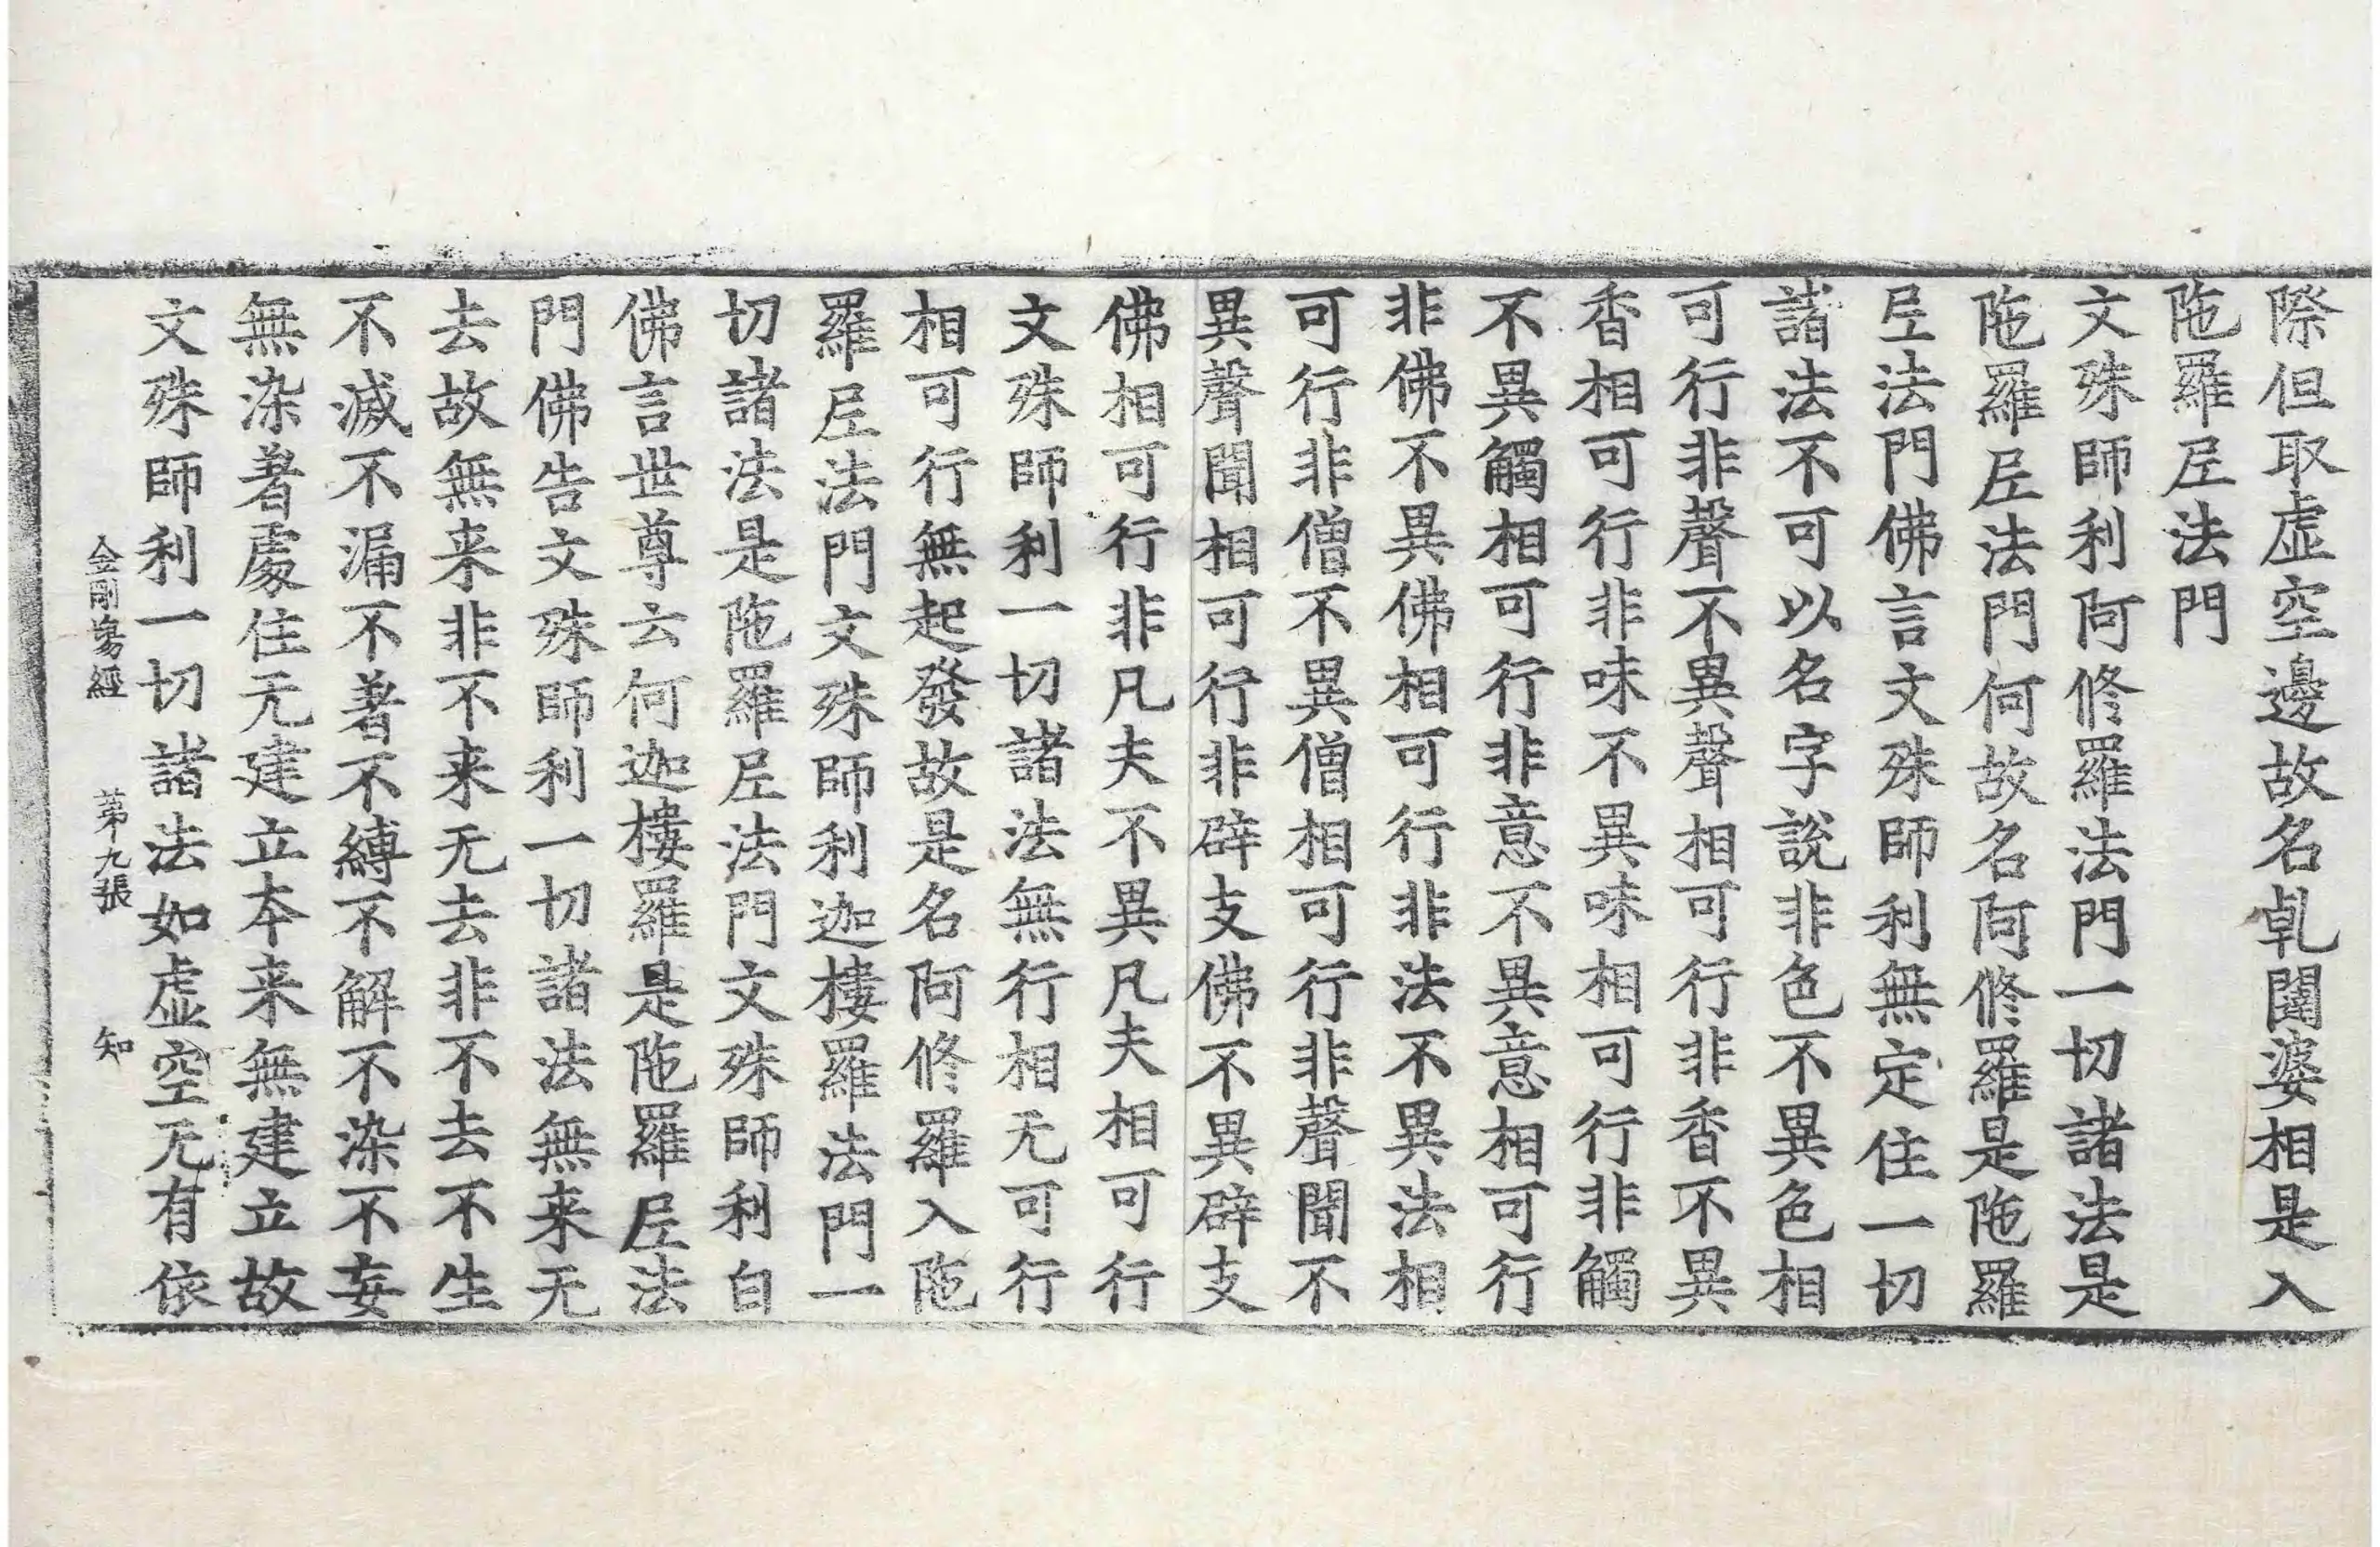 際但取虛空邊故名乹闥婆相是入
陁羅𡰱法門
文殊師利阿修羅法門一切諸法是
陁羅𡰱法門何故名阿修羅是陁羅
𡰱法門佛言文殊師利無定住一切
諸法不可以名字說非色不異色相
可行非聲不異聲相可行非香不異
香相可行非味不異味相可行非觸
不異觸相可行非意不異意相可行
非佛不異佛相可行非法不異法相
可行非僧不異僧相可行非聲聞不
異聲聞相可行非辟支佛不異辟支
佛相可行非凡夫不異凡夫相可行
文殊師利一切諸法無行相无可行
相可行無起發故是名阿修羅入陁
羅𡰱法門文殊師利迦樓羅法門一
切諸法是陁羅𡰱法門文殊師利白
佛言世尊云何迦樓羅是陁羅𡰱法
門佛告文殊師利一切諸法無来无
去故無来非不来无去非不去不生
不滅不漏不著不縛不解不染不妄
無染著處住无建立本来無建立故
文殊師利一切諸法如虛空无有依
金剛塲經 第九張 知